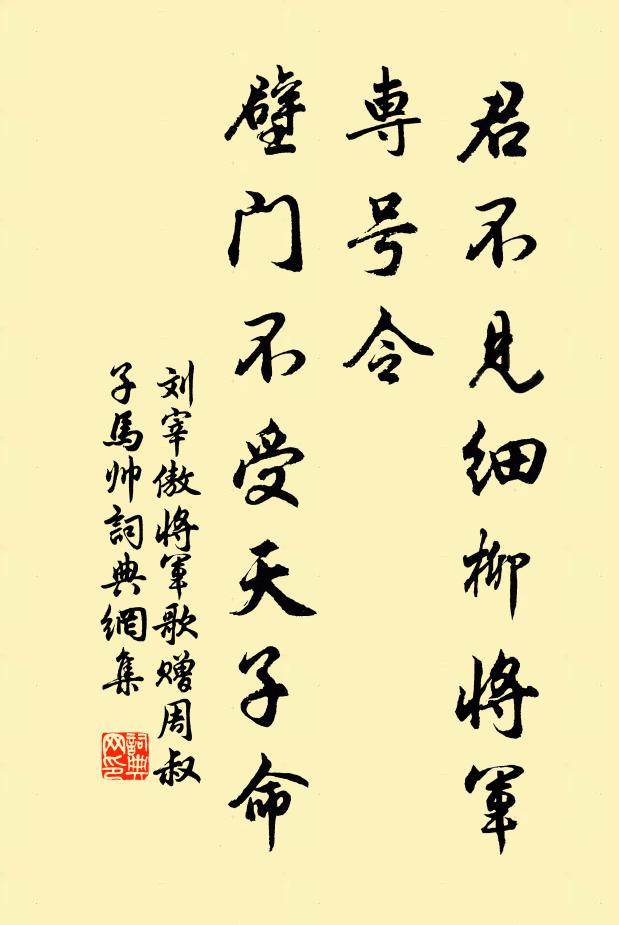 君不见细柳将军
専号令
壁门不受天子命
刘宰傲将军歌赠周叔
子馬帅詞典網集
詞典网印